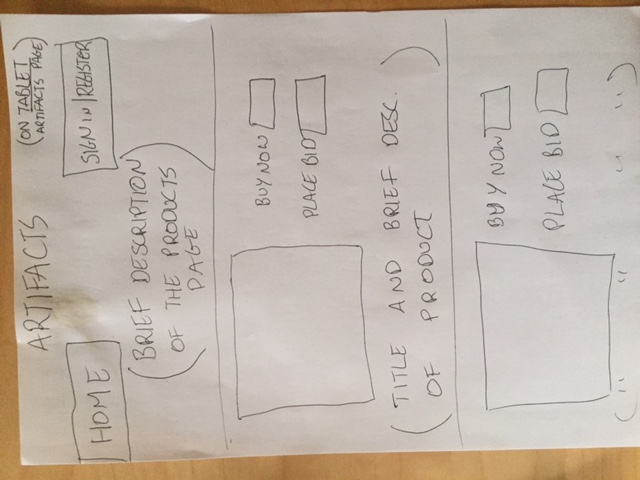 ARTIFACTS
(ON TABLET
ARTIFACTS PAGE)
HOME
SIGN IN | REGISTER
(BRIEF DESCRIPTION
OF THE PRODUCTS
PAGE)
BUY NOW
PLACE BID
(TITLE AND BRIEF DESC.
OF PRODUCT)
BUY NOW
PLACE BID
( " " " " )